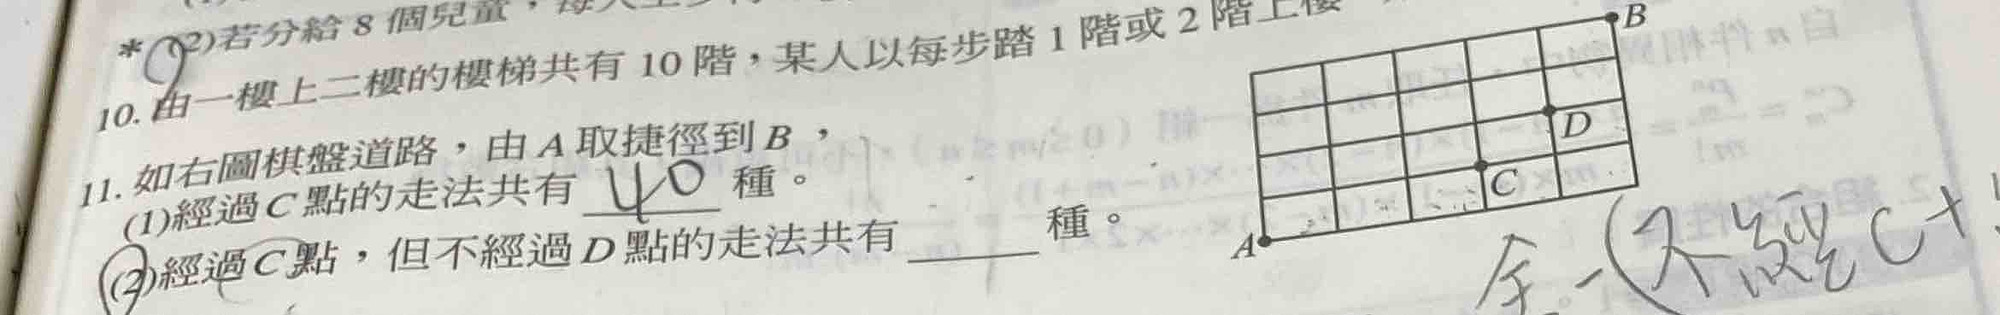 *(2)若分給 8 個兒童，每人至少
10. 由一樓上二樓的樓梯共有 10 階，某人以每步踏 1 階或 2 階上樓
11. 如右圖棋盤道路，由 A 取捷徑到 B，
(1)經過 C 點的走法共有 40 種。
(2)經過 C 點，但不經過 D 點的走法共有____種。
B
D
C
A
全-(不經C+